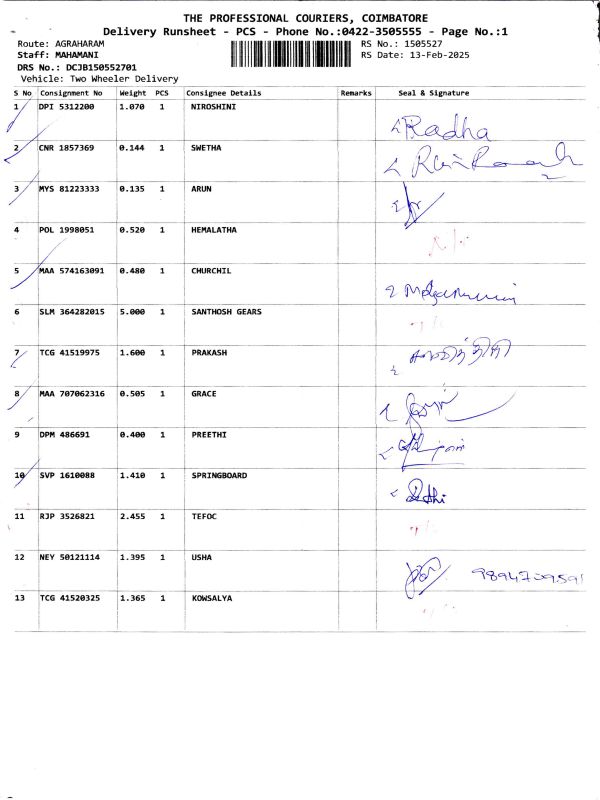 THE PROFESSIONAL COURIERS, COIMBATORE
Delivery Runsheet - PCS - Phone No.:0422-3505555 - Page No.:1
Route: AGRAHARAM RS No.: 1505527
Staff: MAHAMANI RS Date: 13-Feb-2025
DRS No.: DCJB150552701
Vehicle: Two Wheeler Delivery
S No Consignment No Weight PCS Consignee Details Remarks Seal & Signature
1 DPI 5312200 1.070 1 NIROSHINI Radha
2 CNR 1857369 0.144 1 SWETHA
3 MYS 81223333 0.135 1 ARUN
4 POL 1998051 0.520 1 HEMALATHA
5 MAA 574163091 0.480 1 CHURCHIL
6 SLM 364282015 5.000 1 SANTHOSH GEARS
7 TCG 41519975 1.600 1 PRAKASH
8 MAA 707062316 0.505 1 GRACE
9 DPM 486691 0.400 1 PREETHI
10 SVP 1610088 1.410 1 SPRINGBOARD
11 RJP 3526821 2.455 1 TEFOC
12 NEY 50121114 1.395 1 USHA
13 TCG 41520325 1.365 1 KOWSALYA